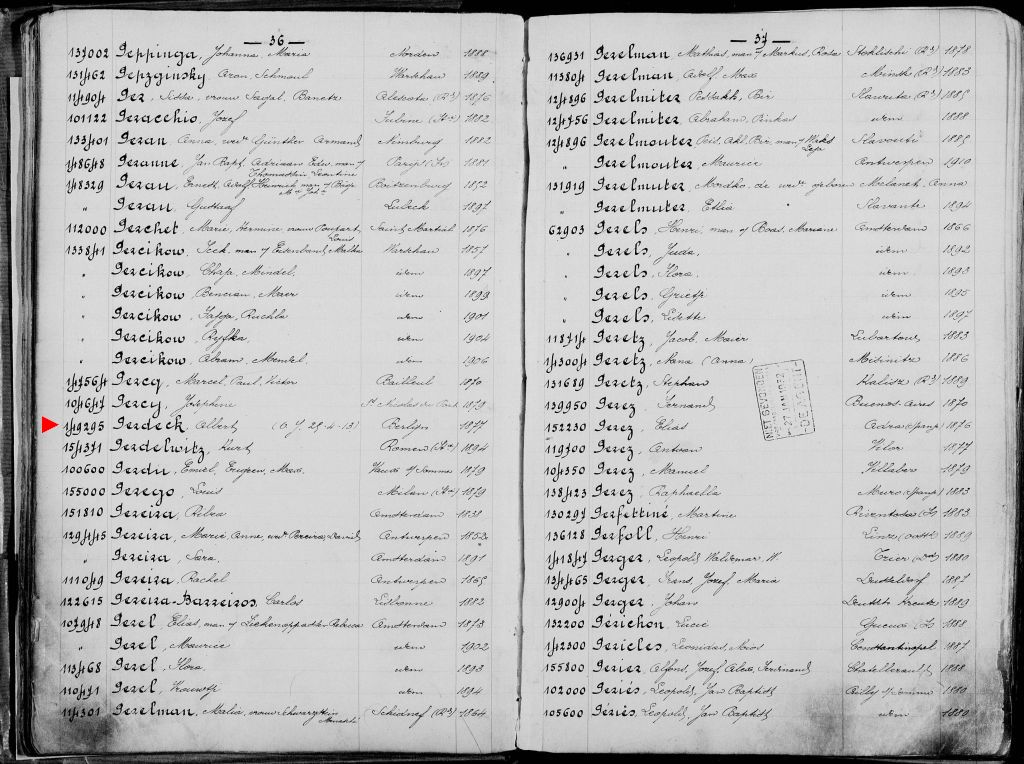 — 36 —
137002 Peppinga, Johanna Maria Norden 1888
131462 Pepzginsky Aron, Schmoul Warschau 1889
114904 Per, vrouw 1876
101122 Peracchio, Jozef (Itie) 1882
133401 Peran Anna, wed Günther Armand Nimburg 1882
148648 Peranne, Jan Bapt. Adriaan Edw. man of Parijs (Fr) 1881
148329 Perau, Ernest, Adolf, Heinrich man of Boitzenburg 1852
" Perau, Gustaaf Lubeck 1897
112000 Perchet, Marie, Hermine vrouw Poupart, Louis Saint Martial 1876
133841 Percikow, Icek man of Eisenband, Malka Warschau 1857
" Percikow, Chaja, Mindel, idem 1897
" Percikow, Bencian, Majer idem 1899
" Percikow, Fajga, Ruchla idem 1901
" Percikow, Ryfka idem 1904
" Percikow, Abram, Mendel idem 1906
147564 Percq, Marcel, Paul, Victor Bailleul 1870
104647 Percy, Josephine St Nicolas du Port 1879
149295 Perdeck, Albert (O.J. 28-4-13) Berlijn 1877
154371 Perdelwitz, Kurt 1894
100600 Perdu, Emiel, Eugeen, Max, s/Somme 1879
155000 Perego, Louis Milan (Itie) 1879
151810 Pereira, Ribca Amsterdam 1838
129445 Pereira, Marie Anne, wed Pereira, David Antwerpen 1853
" Pereira, Sara, Amsterdam 1891
111049 Pereira, Rachel Antwerpen 1865
122615 Pereira-Barreiros, Carlos Lisbonne 1882
107948 Perel, Elias, man of Rebecca Amsterdam 1873
" Perel, Maurice idem 1902
113468 Perel, Flora, idem 1893
110471 Perel, Vrouwtje idem 1894
114301 Perelman, Malia, vrouw (Rd) 1864
— 37 —
136931 Perelman Mathias, man of Markus, Rosa (Rd) 1878
113804 Perelman, Adolf, Max Minsk (Rd) 1883
124896 Perelmiter, Ber Slavuta (Rd) 1885
124756 Perelmiter, Abraham, Pinkas idem 1888
124896 Perelmouter, Ber, man of 1885
" Perelmouter, Maurice Antwerpen 1910
131919 Perelmuter, Mordko, de wed geboren Melanet, Anna
" Perelmuter, Etlia 1894
62903 Perels, Henri, man of Boas, Mariane Amsterdam 1866
" Perels, Juda, idem 1892
" Perels, Flora, idem 1893
" Perels, Grietje idem 1895
" Perels, Lisette idem 1897
118714 Peretz, Jacob, Maier Lubartow 1883
143004 Peretz, Nana (Anna) 1886
131689 Peretz, Stephan Kalisz (Rd) 1889
139950 Perez, Fernand Buenos-Aires 1870
152230 Perez, Elias Adra (Spanje) 1876
119700 Perez, Antoon 1877
104350 Perez, Manuel 1879
138423 Perez, Raphaella Muro (Spanje) 1883
130297 Perfettiné, Martine 1883
136128 Perfoll, Henri 1889
141847 Perger, Leopold, Waldemar, W. Trier 1880
134465 Perger, Frans, Jozef, Maria Dusseldorf 1887
129004 Perger, Johan 1889
132200 Périchon, Lucie (Fr) 1888
142300 Pericles, Leonidas, Constantinopel 1887
155800 Perier, Alfons, Jozef, Alex, Ferdinand Chatellerault 1888
102000 Periés, Leopold, Jan Baptist s/Somme 1880
105600 Périés, Leopold, Jan Baptist idem 1880
NIET GEVONDEN
27 JAN 1932
DE AGENT